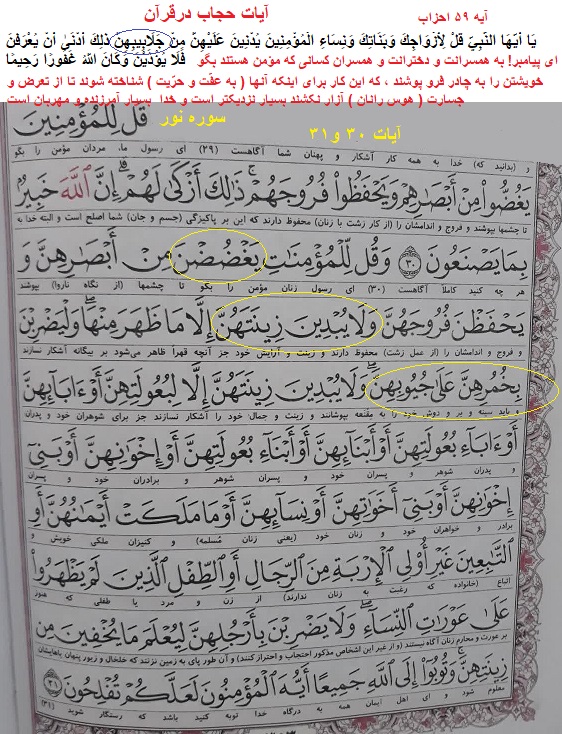 آیات حجاب درقرآن
آیه ۵۹ احزاب
يَا أَيُّهَا النَّبِيُّ قُلْ لِأَزْوَاجِكَ وَبَنَاتِكَ وَنِسَاءِ الْمُؤْمِنِينَ يُدْنِينَ عَلَيْهِنَّ مِنْ جَلَابِيبِهِنَّ ذَلِكَ أَدْنَى أَنْ يُعْرَفْنَ
فَلَا يُؤْذَيْنَ وَكَانَ اللَّهُ غَفُورًا رَحِيمًا
ای پیامبر! به همسرانت و دخترانت و همسران کسانی که مؤمن هستند بگو
خویشتن را به چادر فرو پوشند ، که این کار برای اینکه آنها ( به عفت و حرّیت ) شناخته شوند تا از تعرض و
جسارت ( هوس رانان ) آزار نکشند بسیار نزدیکتر است و خدا بسیار آمرزنده و مهربان است
سوره نور
آیات ۳۰ و۳۱
قُل لِّلْمُؤْمِنِينَ
و (بدانید که) خدا به همه کار آشکار و پنهان شما آگاهست (۲۹) ای رسول ما، مردان مؤمن را بگو
يَغُضُّوا مِنْ أَبْصَارِهِمْ وَيَحْفَظُوا فُرُوجَهُمْ ذَٰلِكَ أَزْكَىٰ لَهُمْ إِنَّ اللَّهَ خَبِيرٌ
تا چشمها بپوشند و فروج و اندامشان را (از کار زشت با زنان) محفوظ دارند که این بر پاکیزگی (جسم و جان) شما اصلح است و البته خدا به
بِمَا يَصْنَعُونَ ﴿۳۰﴾ وَقُل لِّلْمُؤْمِنَاتِ يَغْضُضْنَ مِنْ أَبْصَارِهِنَّ وَ
هر چه کنید کاملاً آگاهست (۳۰) ای رسول زنان مؤمن را بگو تا چشمها (از نگاه ناروا) بپوشند
يَحْفَظْنَ فُرُوجَهُنَّ وَلَا يُبْدِينَ زِينَتَهُنَّ إِلَّا مَا ظَهَرَ مِنْهَا وَلْيَضْرِبْنَ
و فروج و اندامشان را (از عمل زشت) محفوظ دارند و زینت و آرایش خود جز آنچه قهراً ظاهر می‌شود بر بیگانه آشکار نسازند
بِخُمُرِهِنَّ عَلَىٰ جُيُوبِهِنَّ وَلَا يُبْدِينَ زِينَتَهُنَّ إِلَّا لِبُعُولَتِهِنَّ أَوْ آبَائِهِنَّ
و باید سینه و بر و دوش خود را به مقنعه بپوشانند و زینت و جمال خود را آشکار نسازند جز برای شوهران خود و پدران
أَوْ آبَاءِ بُعُولَتِهِنَّ أَوْ أَبْنَائِهِنَّ أَوْ أَبْنَاءِ بُعُولَتِهِنَّ أَوْ إِخْوَانِهِنَّ أَوْ بَنِي
و پدران شوهر و پسران خود و پسران شوهر و برادران خود و پسران
إِخْوَانِهِنَّ أَوْ بَنِي أَخَوَاتِهِنَّ أَوْ نِسَائِهِنَّ أَوْ مَا مَلَكَتْ أَيْمَانُهُنَّ أَوِ
برادر و خواهران خود و زنان خود (یعنی زنان مُسلمه) و کنیزان ملکی خویش و
التَّابِعِينَ غَيْرِ أُولِي الْإِرْبَةِ مِنَ الرِّجَالِ أَوِ الطِّفْلِ الَّذِينَ لَمْ يَظْهَرُوا
اتباع (خانواده که رغبت به زنان ندارند) از زن و مرد یا طفلی که هنوز
عَلَىٰ عَوْرَاتِ النِّسَاءِ وَلَا يَضْرِبْنَ بِأَرْجُلِهِنَّ لِيُعْلَمَ مَا يُخْفِينَ مِن
بر عورت و محارم زنان آگاه نیستند (و از غیر این اشخاص مذکور احتجاب و احتراز کنند) و آن طور پای به زمین نزنند که خلخال و زیور پنهان پاهایشان
زِينَتِهِنَّ وَتُوبُوا إِلَى اللَّهِ جَمِيعًا أَيُّهَ الْمُؤْمِنُونَ لَعَلَّكُمْ تُفْلِحُونَ ﴿۳۱﴾
معلوم شود و ای اهل ایمان همه به درگاه خدا توبه کنید باشد که رستگار شوید (۳۱)